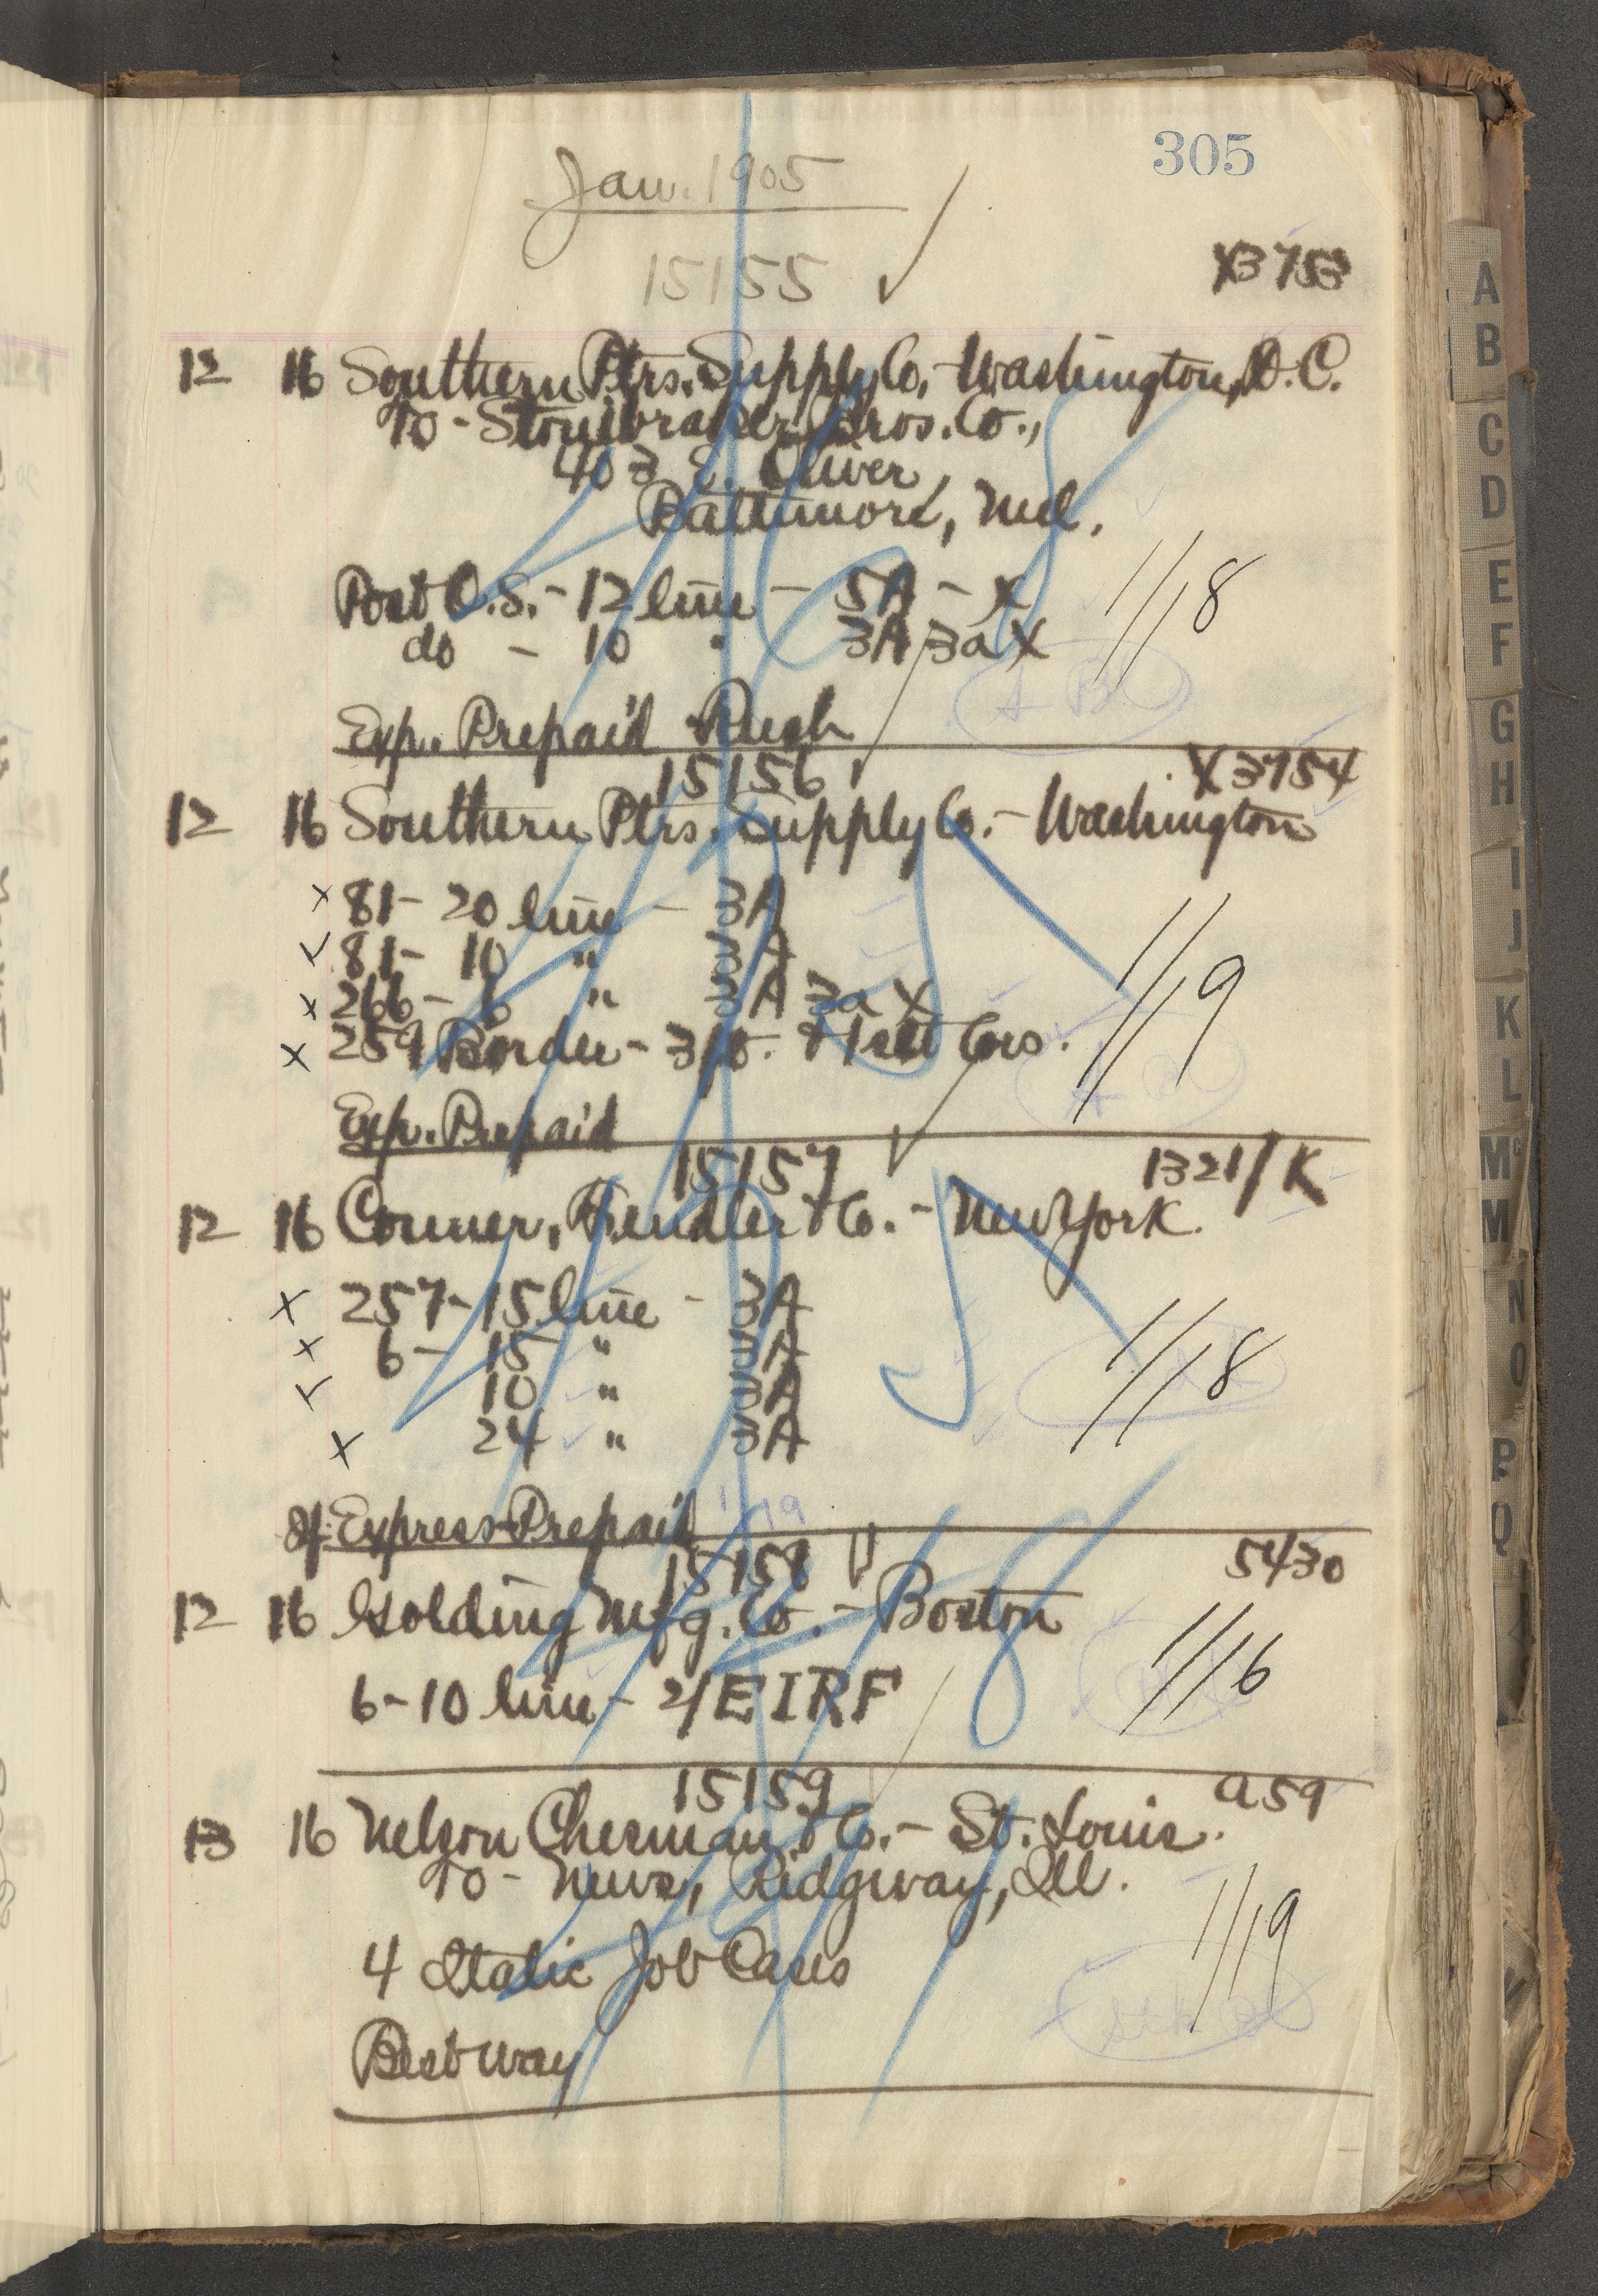 305
Jan. 1905
15155
X3753
12 16 Southern Ptrs. Supply Co. - Washington, D.C.
To - Stonebraker Bros. Co.,
403 E. Oliver,
Baltimore, Md.
Post O.S. - 12 line - 5A - X
do - 10 " 3A 3a X
1/18
Exp. Prepaid Rush
15156 X3754
12 16 Southern Ptrs. Supply Co. - Washington
x 81 - 20 line - 3A
✓ 81 - 10 " 3A
x 266 - 6 " 3A 3a X
x 259 Border - 3 ft. & 1 set Cors.
1/19
Exp. Prepaid
15157 1321/K
12 16 Conner, Fendler & Co. - New York.
x 257 - 15 line - 3A
x 6 - 15 " 3A
✓ 10 " 3A
x 24 " 3A
1/18
Express Prepaid 1/19
15158 5430
12 16 Golding Mfg. Co. - Boston
6 - 10 line - 2/EIRF
1/16
15159 a59
13 16 Nelson Chesman & Co. - St. Louis.
To - News, Ridgway, Ill.
4 Italic Job Cases
1/19
Best way
A
B
C
D
E
F
G
H
I
J
K
L
Mc
M
N
O
P
Q